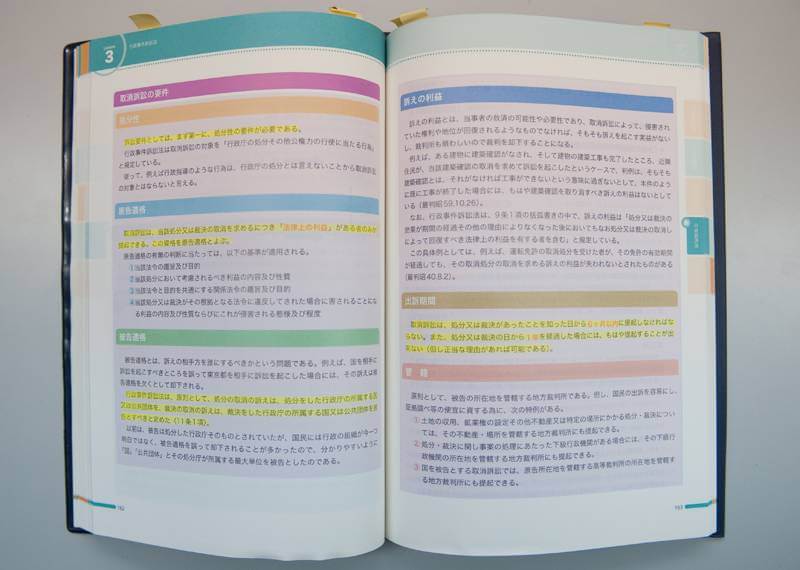 3
行政事件訴訟法
取消訴訟の要件
処分性
訴訟要件としては、まず第一に、処分性の要件が必要である。
行政事件訴訟法は取消訴訟の対象を「行政庁の処分その他公権力の行使に当たる行為」
と規定している。
従って、例えば行政指導のような行為は、行政庁の処分とは言えないことから取消訴訟
の対象とはならないと言える。
原告適格
取消訴訟は、当該処分又は裁決の取消を求めるにつき「法律上の利益」がある者のみが
提起できる。この資格を原告適格とよぶ。
原告適格の有無の判断に当たっては、以下の基準が適用される。
①当該法令の趣旨及び目的
②当該処分において考慮されるべき利益の内容及び性質
③当該法令と目的を共通にする関係法令の趣旨及び目的
④当該処分又は裁決がその根拠となる法令に違反してされた場合に害されることにな
る利益の内容及び性質ならびにこれが侵害される態様及び程度
被告適格
被告適格とは、訴えの相手方を誰にするべきかという問題である。例えば、国を相手に
訴訟を起こすべきところを誤って東京都を相手に訴訟を起こした場合には、その訴えは被
告適格を欠くとして却下される。
行政事件訴訟法は、原則として、処分の取消の訴えは、処分をした行政庁の所属する国
又は公共団体を、裁決の取消の訴えは、裁決をした行政庁の所属する国又は公共団体を被
告とすべきと定めた（11条1項）。
以前は、被告は処分した行政庁そのものとされていたが、国民には行政の組織が今一つ
明白ではなく、被告適格を誤って却下されることが多かったので、分かりやすいように
「国」「公共団体」とその処分庁が所属する最大単位を被告としたのである。
162
訴えの利益
訴えの利益とは、当事者の救済の可能性や必要性であり、取消訴訟によって、侵害され
ていた権利や地位が回復されるようなものでなければ、そもそも訴えを起こす実益がない
し、裁判所も煩わしいので裁判を却下することになる。
例えば、ある建物に建築確認がなされ、そして建物の建築工事も完了したところ、近隣
住民が、当該建築確認の取消を求めて訴訟を起こしたというケースで、判例は、そもそも
建築確認とは、それがなければ工事ができないという意味に過ぎないとして、本件のよう
に既に工事が終了した場合には、もはや建築確認を取り消すべき訴えの利益はないとして
いる（最判昭59.10.26）。
なお、行政事件訴訟法は、9条1項の括弧書きの中で、訴えの利益は「処分又は裁決の
効果が期間の経過その他の理由によりなくなった後においてもなお処分又は裁決の取消し
によって回復すべき法律上の利益を有する者を含む」と規定している。
この具体例としては、例えば、運転免許の取消処分を受けた者が、その免許の有効期間
が経過しても、その取消処分の取消を求める訴えの利益が失われないとされたものがある
（最判昭40.8.2）。
行政救済法
出訴期間
取消訴訟は、処分又は裁決があったことを知った日から6ヶ月以内に提起しなければな
らない。また、処分又は裁決の日から1年を経過した場合には、もはや提起することが出
来ない（但し正当な理由があれば可能である）。
管　轄
原則として、被告の所在地を管轄する地方裁判所である。但し、国民の出訴を容易にし、
証拠調べ等の便宜に資する為に、次の特例がある。
①土地の収用、鉱業権の設定その他不動産又は特定の場所にかかる処分・裁決につい
ては、その不動産・場所を管轄する地方裁判所にも提起できる。
②処分・裁決に関し事案の処理にあたった下級行政機関がある場合には、その下級行
政機関の所在地を管轄する地方裁判所にも提起できる。
③国を被告とする取消訴訟では、原告所在地を管轄する高等裁判所の所在地を管轄す
る地方裁判所にも提起できる。
163